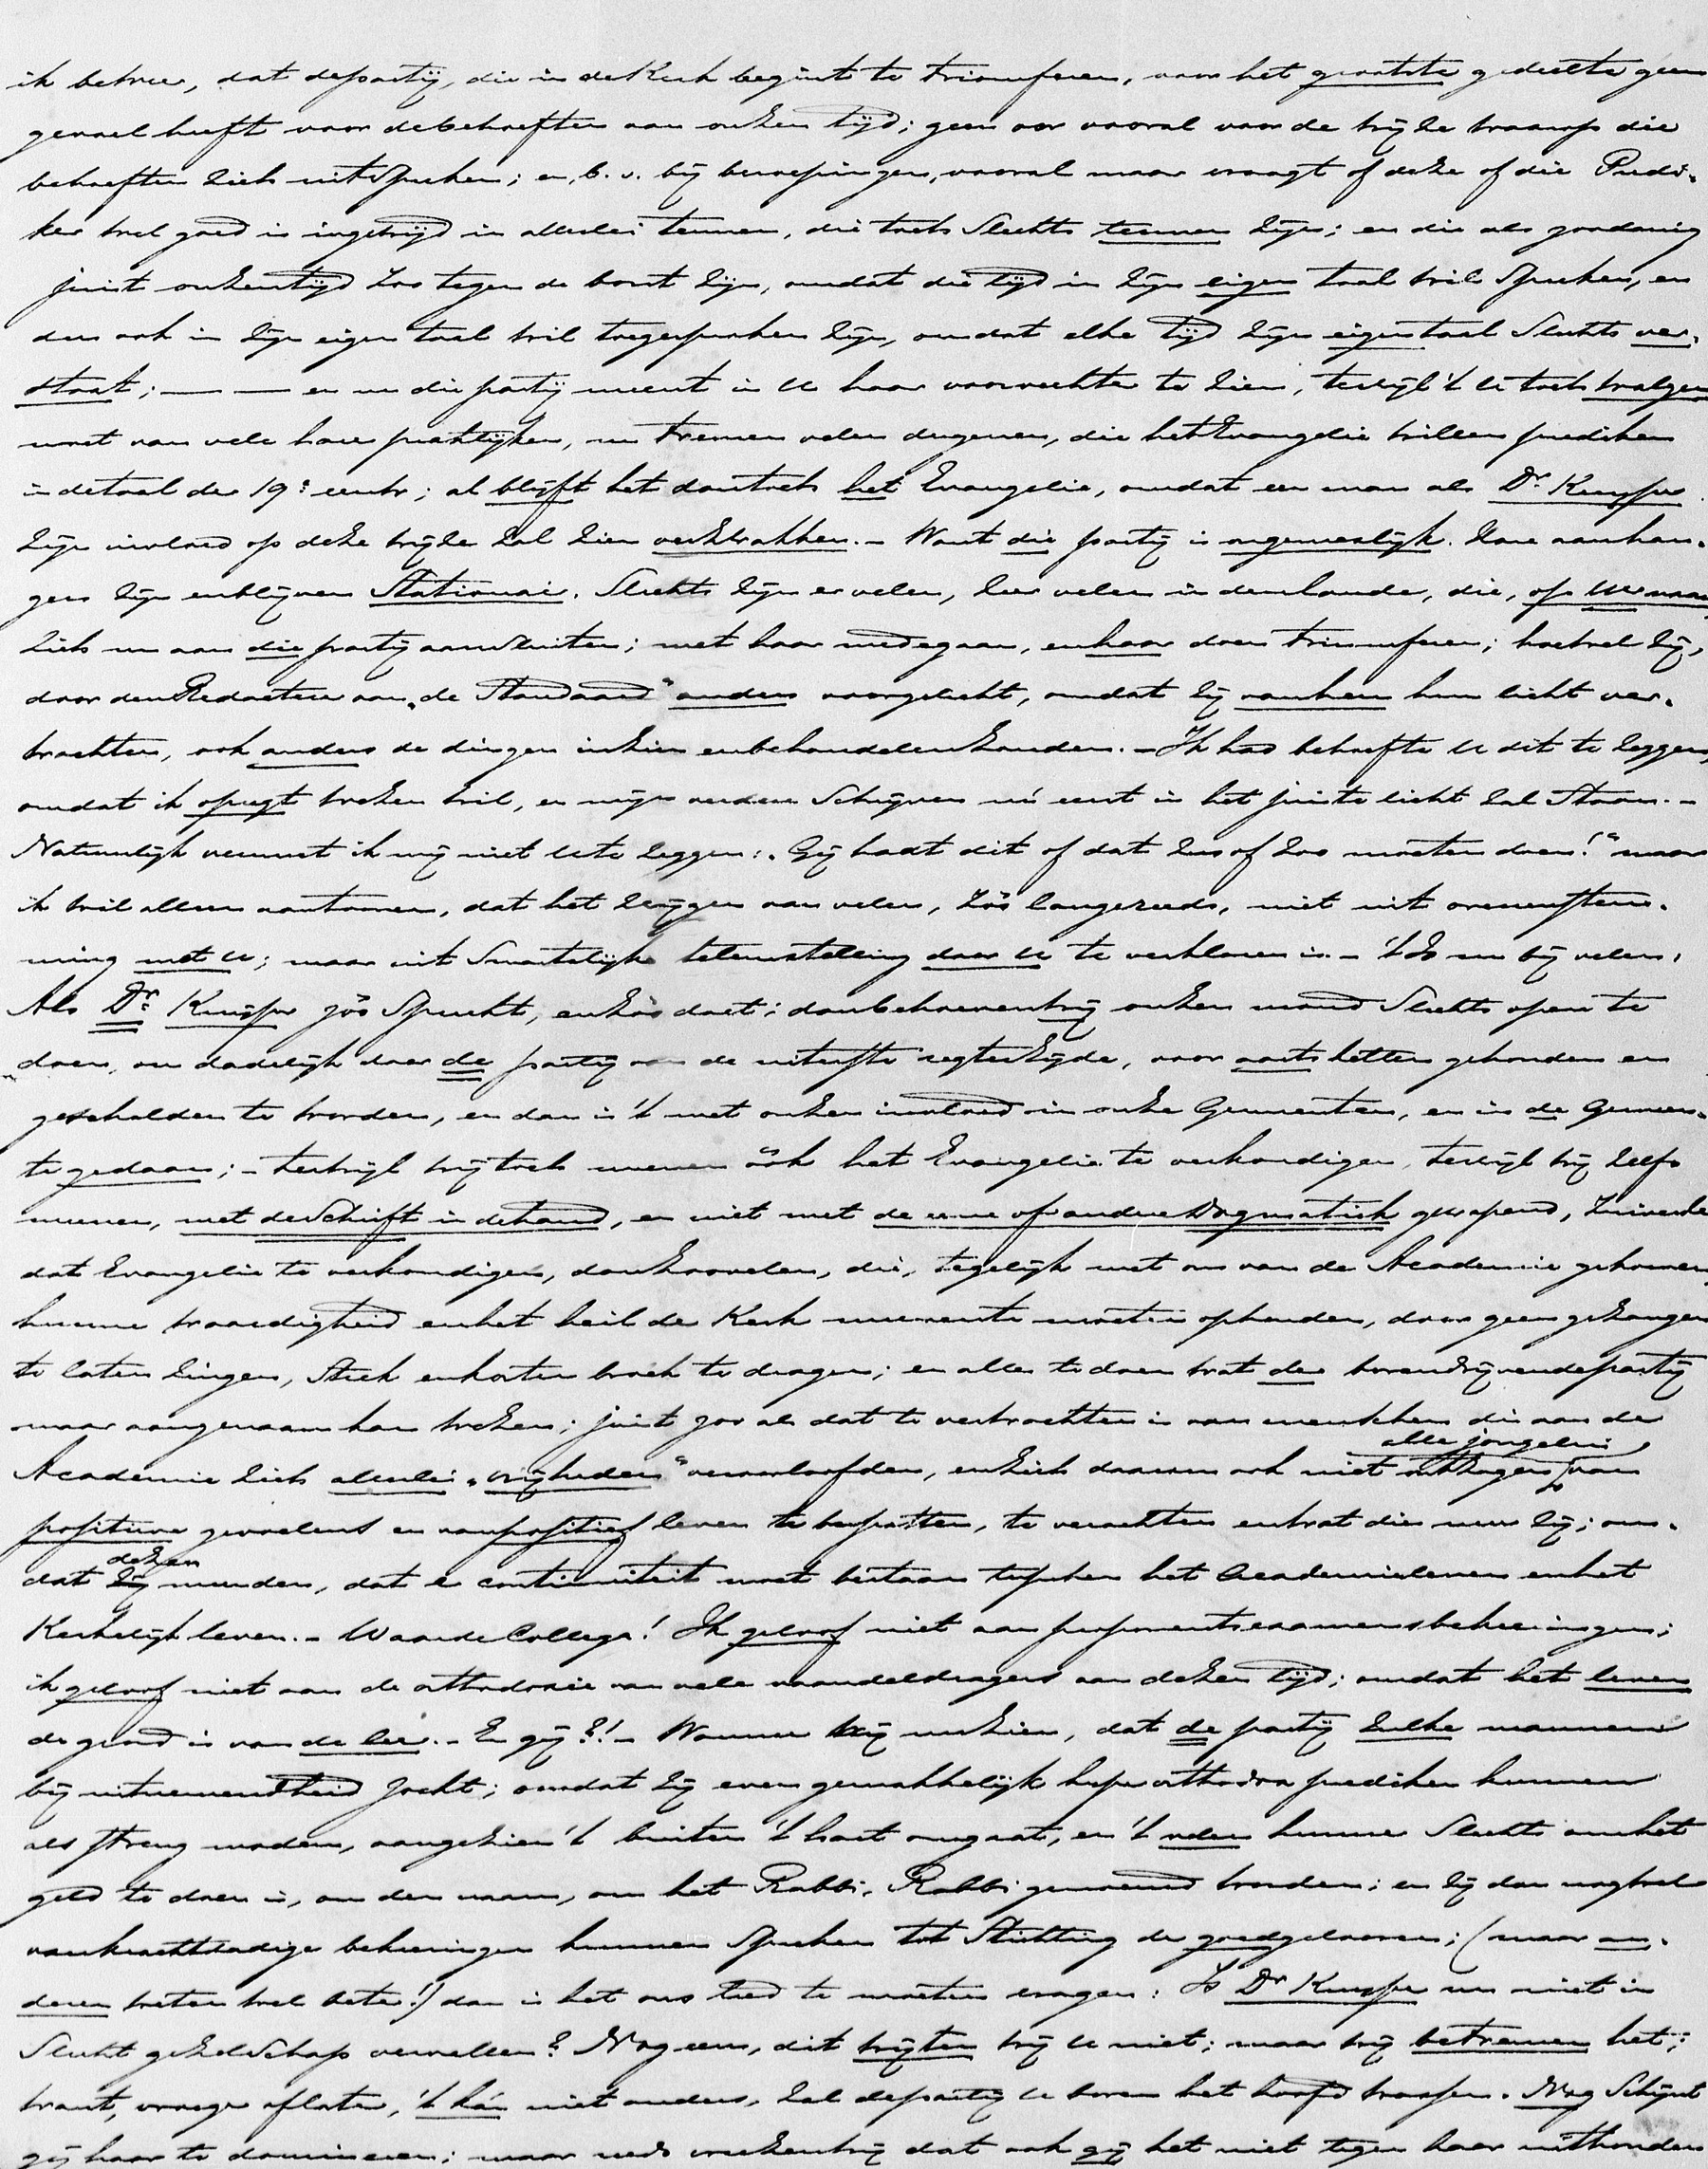 ik betreur, dat de partij, die in de Kerk begint te triomferen, voor het grootste gedeelte geen
gevoel heeft voor de behoeften van onzen tijd; geen oor vooral voor de wijze waarop die
behoeften zich uitspreken; en, b.v. bij beroepingen, vooral maar vraagt of deze of die Predi-
ker wel goed is ingewijd in allerlei termen, die toch slechts termen zijn; en die als zoodanig
juist onzen tijd zoo tegen de borst zijn, omdat die tijd in zijn eigen taal wil spreken, en
dus ook in zijn eigen taal wil toegesproken zijn, omdat elke tijd zijn eigen taal slechts ver-
staat; — — en nu die partij meent in U haar voorvechter te zien, terwijl 't U toch walgen
moet van vele harer praktijken, nu treuren velen dergenen, die het Evangelie willen prediken
in de taal der 19e eeuw; al blijft het dan toch het Evangelie, omdat een man als Dr. Kuyper
zijn invloed op deze wijze zal zien verzwakken. – Want die partij is ongeneeslijk. Hare aanhan-
gers zijn en blijven stationair. Slechts zijn er velen, zeer velen in den lande, die, op uw naam,
zich nu aan die partij aansluiten; met haar medegaan, en haar doen triumferen; hoewel zij,
door den Redacteur van „de Standaard" anders voorgelicht, omdat zij van hem hun licht ver-
wachten, ook anders de dingen inzien en behandelen zouden. – Ik had behoefte U dit te zeggen,
omdat ik opregt wezen wil, en mijn verder schrijven nu eerst in het juiste licht zal staan. –
Natuurlijk vermeet ik mij niet U te zeggen: „Gij hadt dit of dat zus of zoo moeten doen!" maar
ik wil alleen aantoonen, dat het zwijgen van velen, zóó lang reeds, niet uit overeenstem-
ming met U; maar uit smartelijke teleurstelling door U te verklaren is. – 't Is nu bij velen:
Als Dr. Kuyper zóó spreekt, en zóó doet; dan behoeven wij onzen mond slechts open te
doen, om dadelijk door de partij van de uiterste regterzijde, voor aartsketters gehouden en
gescholden te worden, en dan is 't met onzen invloed in onze Gemeenten, en in de Gemeen-
te gedaan; – terwijl wij toch meenen óók het Evangelie te verkondigen, terwijl wij zelfs
meenen, met de Schrift in de hand, en niet met de eene of andere Dogmatiek gewapend, zuiverder
dat Evangelie te verkondigen, dan zoovelen, die, tegelijk met ons van de Academie gekomen,
hunne waardigheid en het heil der Kerk meenen te moeten ophouden, door geen gezangen
te laten zingen, steek en korten broek te dragen; en alles te doen wat der bovendrijvende partij
maar aangenaam kan wezen; juist zoo als dat te verwachten is van menschen die aan de
Academie zich allerlei „vrijheden" veroorloofden, en zich daarom ook niet ontzagen alle jongelui van
positieve gevoelens en van positief leven te bespotten, te verachten en wat dies meer zij; om-
dat dezen meenden, dat er continuïteit moet bestaan tusschen het Academieleven en het
Kerkelijk leven. – Waarde Collega! Ik geloof niet aan proponentsexamensbekeeringen;
ik geloof niet aan de orthodoxie van vele vaandeldragers van dezen tijd; omdat het leven
de grond is van de leer. – En gij?! – Wanneer wij nu zien, dat de partij zulke mannen
bij uitnemendheid zoekt; omdat zij even gemakkelijk hyperorthodox prediken kunnen
als streng modern, aangezien 't buiten 't hart omgaat, en 't velen hunner slechts om het
geld te doen is, om den naam, om het Rabbi, Rabbi genoemd worden; en zij dan nog wel
van krachtdadige bekeeringen kunnen spreken tot stichting der goedgeloovigen; (maar an-
deren weten wel beter!) dan is het ons leed te moeten vragen: Is Dr Kuyper nu niet in
slecht gezelschap vervallen? Nog eens, dit wijten wij U niet; maar wij betreuren het;
want, vroeg of laat, 't kán niet anders, zal de partij U boven het hoofd wassen. Nog schijnt
gij haar te domineren; maar reeds vreezen wij dat ook gij het niet tegen haar uithouden